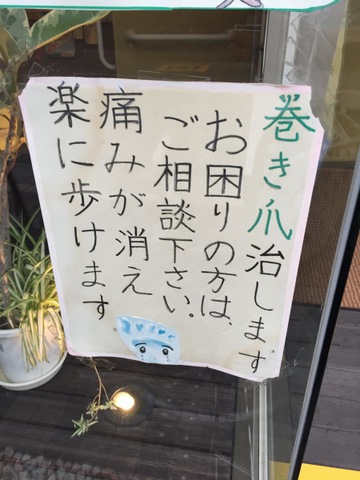 巻き爪治します
お困りの方は、
ご相談下さい。
痛みが消え
楽に歩けます